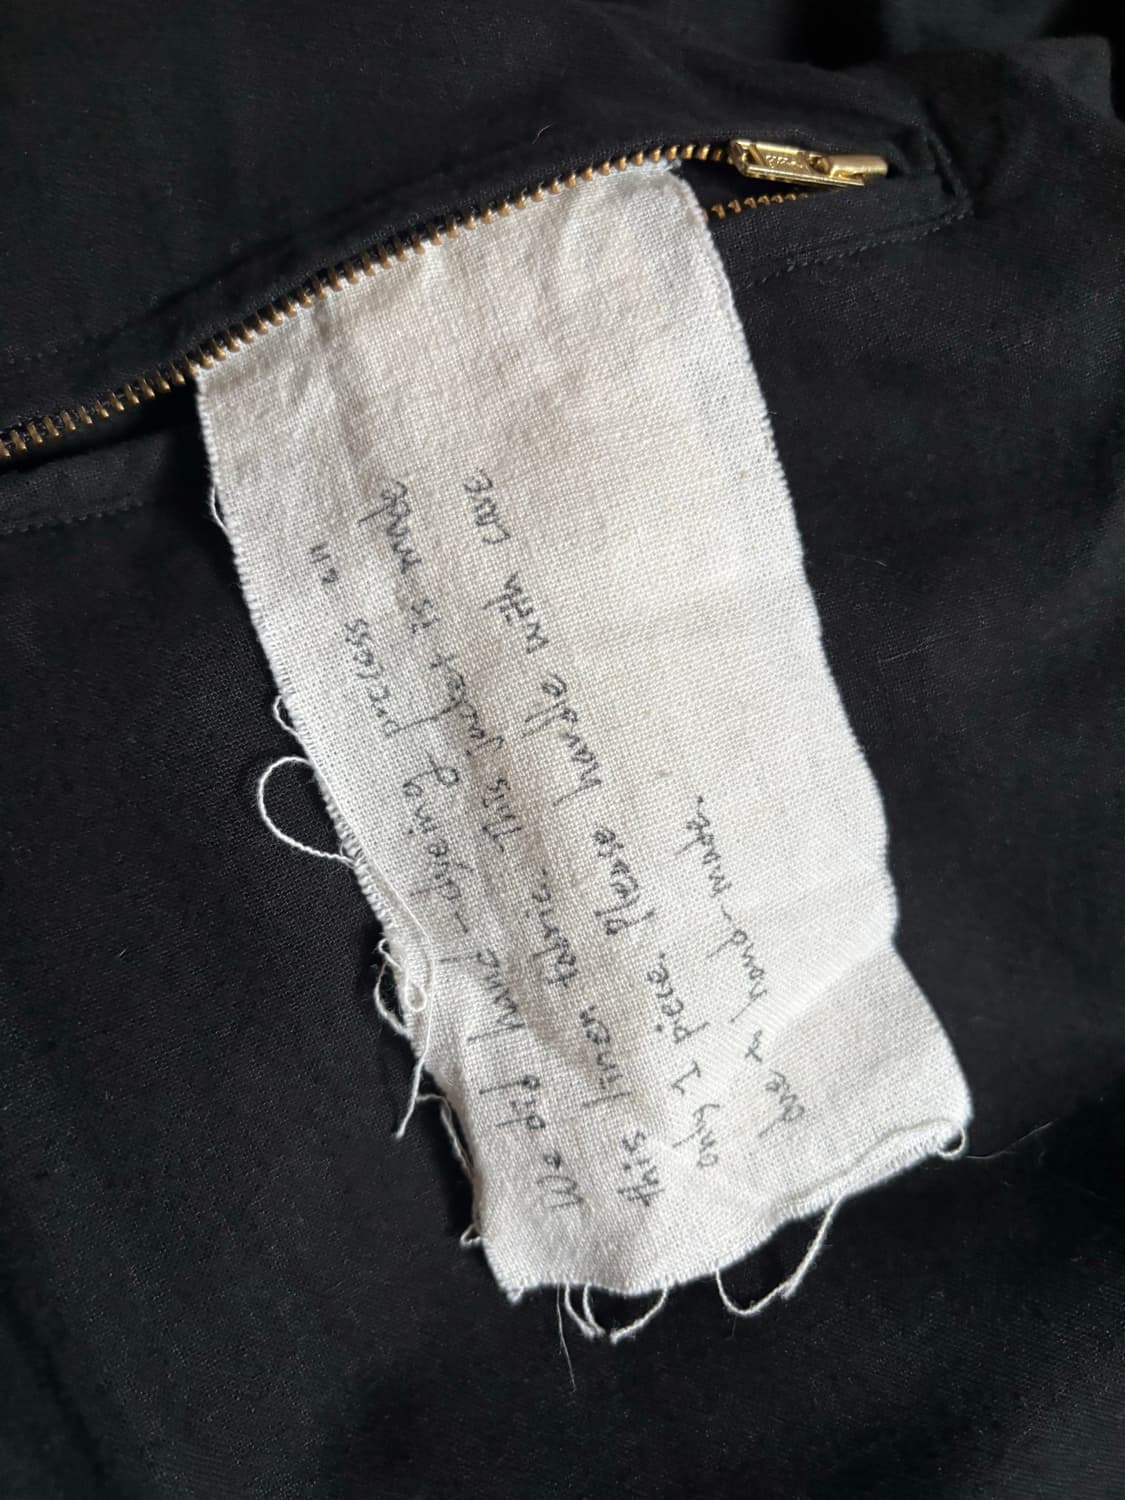 We did hand-dyeing process on
this linen fabric. This jacket is made
only 1 piece. Please handle with care
due to hand-made.